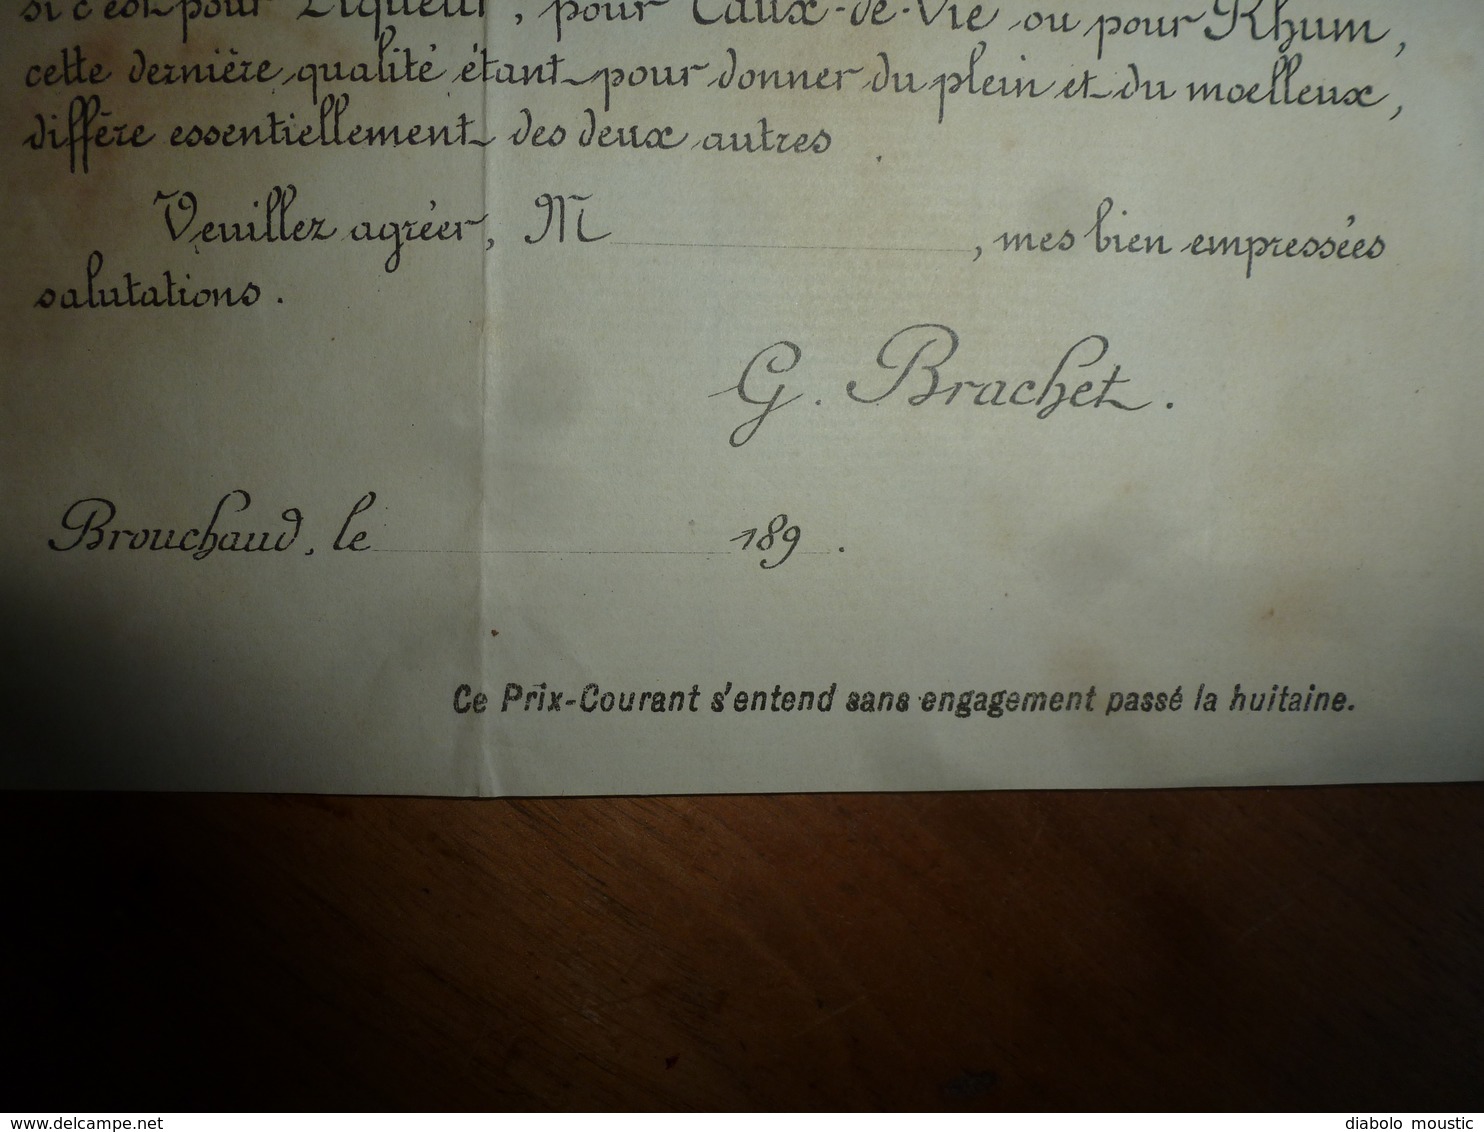 si c'est pour Liqueur, pour Eaux-de-Vie ou pour Rhum,
cette dernière qualité étant pour donner du plein et du moelleux,
diffère essentiellement des deux autres.
Veuillez agréer, M , mes bien empressées
salutations.
G. Brachet.
Brouchaud, le 189 .
Ce Prix-Courant s'entend sans engagement passé la huitaine.
© delcampe.net
diabolo moustic